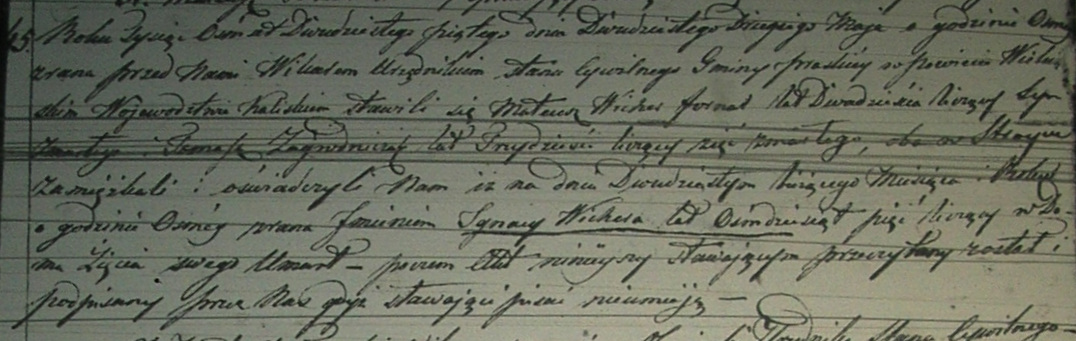 45. Roku Tysiąc Osm set Dwudziestego piątego dnia Dwudziestego Drugiego Maja o godzinie Osmey
zrana przed Nami Wikarem Urzędnikiem stanu Cywilnego Gminy praskiey w powiecie Wieluń-
skim Wojewodztwie Kaliskim stawili się Mateusz Wicher fornal lat Dwadzieścia liczący Syn
zmarłego i Tomasz Zagrodniczek lat Trzydzieści liczący zięć zmarłego, oba w
Zamięszkali i oświadczyli Nam iż na dniu Dwudziestym bieżącego Miesiąca i Roku
o godzinie Osmey zrana Imieniem Ignacy Wichera lat Ośmdziesiąt pięć liczący w Do-
mu Życia swego Umarł – poczem Akt ninieyszy stawającym przeczytany został i
podpisany przez Nas gdyż stawający pisać nieumieją –
stanu Cywilnego –